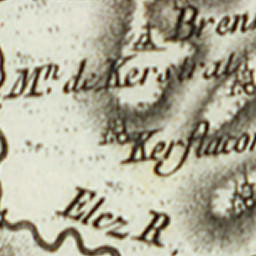 Bren
Mn. de Kerstrat
Kerflacon
Elez R.